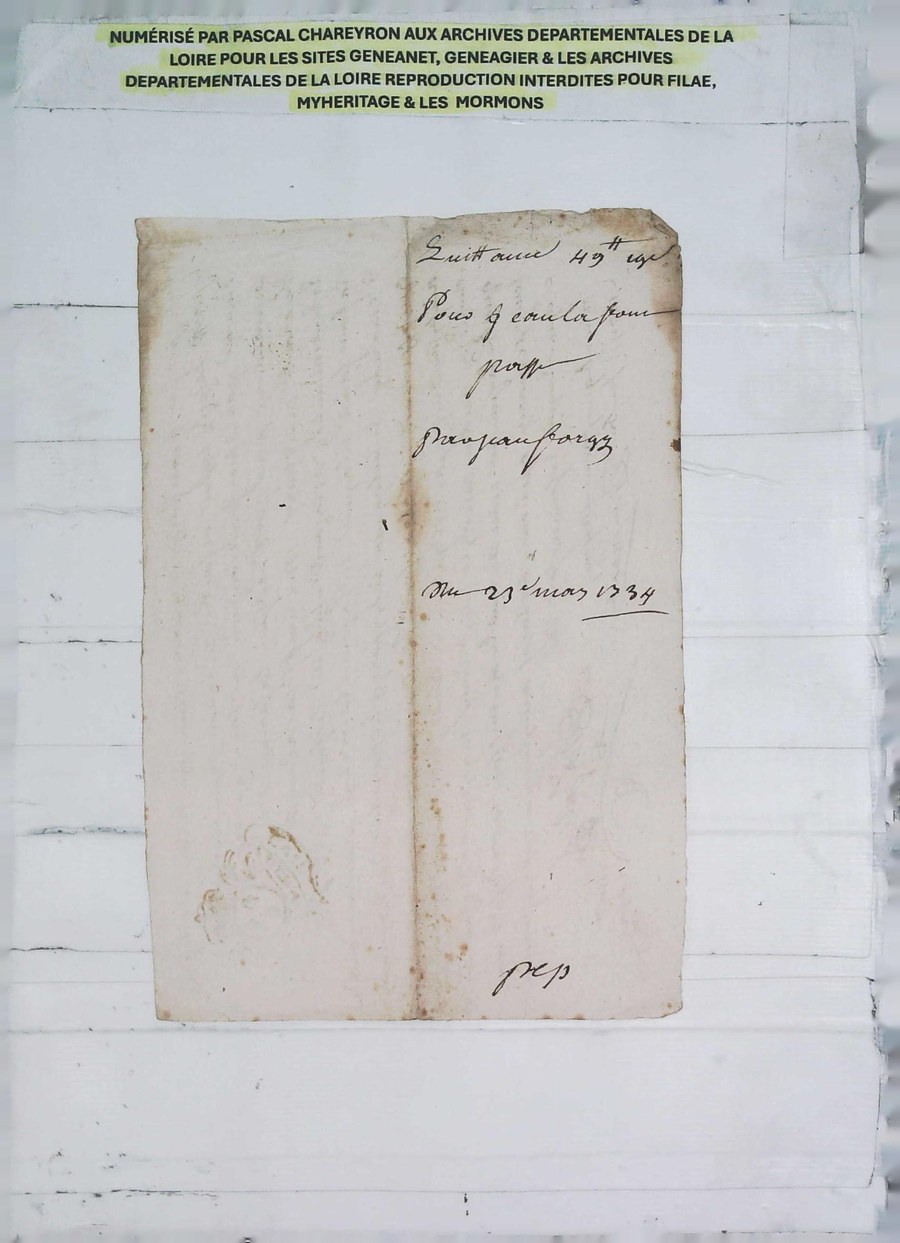 NUMÉRISÉ PAR PASCAL CHAREYRON AUX ARCHIVES DEPARTEMENTALES DE LA
LOIRE POUR LES SITES GENEANET, GENEAGIER & LES ARCHIVES
DEPARTEMENTALES DE LA LOIRE REPRODUCTION INTERDITES POUR FILAE,
MYHERITAGE & LES MORMONS
Quittance 49ᵗᵗ
Pour
passe
par jean
Du 23ᵉ mars 1734